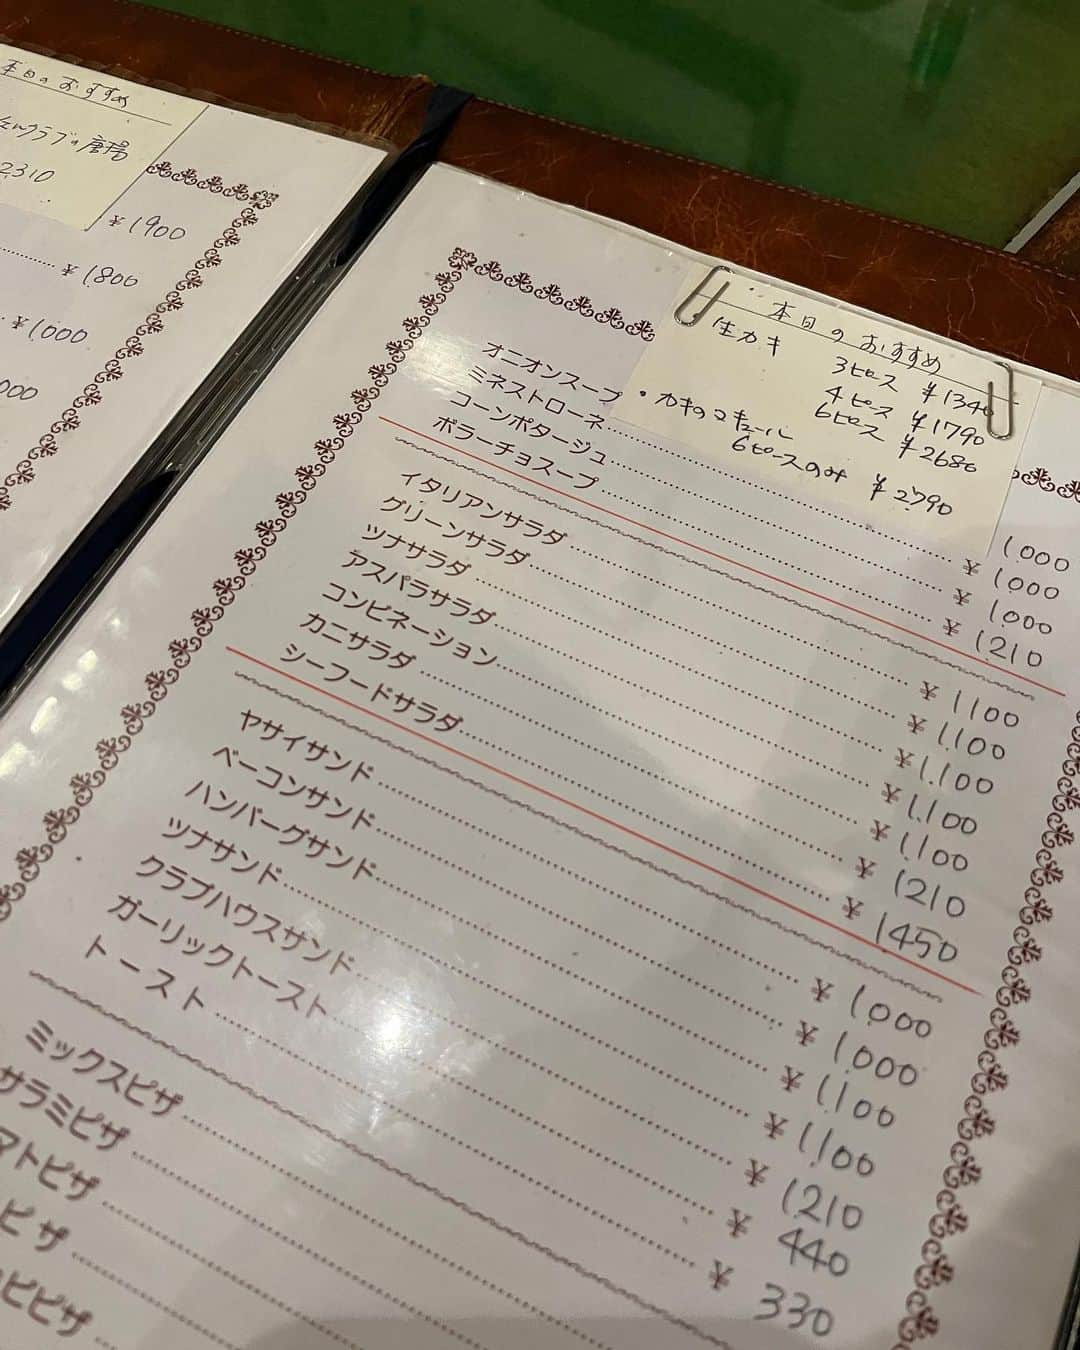 本日のおすすめ
の唐揚
2310
¥1900
¥1,800
¥1,000
000
本日のおすすめ
生カキ 3ピース ¥1340
4ピース ¥1790
6ピース ¥2680
・カキのコキュール
6ピースのみ ¥2790
オニオンスープ 1,000
ミネストローネ ¥1,000
コーンポタージュ ¥1,000
ボラーチョスープ ¥1,210
イタリアンサラダ ¥1,100
グリーンサラダ ¥1,100
ツナサラダ ¥1,100
アスパラサラダ ¥1,100
コンビネーション ¥1,100
カニサラダ ¥1,210
シーフードサラダ ¥1450
ヤサイサンド ¥1,000
ベーコンサンド ¥1,000
ハンバーグサンド ¥1,100
ツナサンド ¥1,100
クラブハウスサンド ¥1,210
ガーリックトースト ¥440
トースト ¥330
ミックスピザ
サラミピザ
マトピザ
ピザ
ピピザ